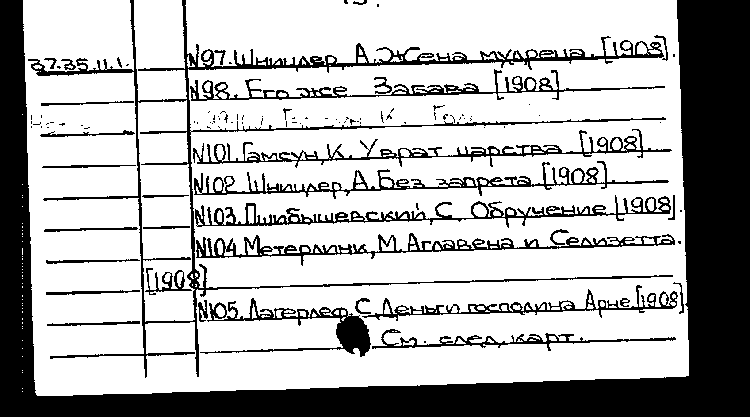 37.35.11.1. N97. Шницлер, А. Жена мудреца. [1908].
N98. Его же Забава [1908].
N101. Гамсун, К. У врат царства. [1908].
N102. Шницлер, А. Без запрета [1908].
N103. Пшибышевский, С. Обручение [1908].
N104. Метерлинк, М. Аглавена и Селизетта.
[1908]
N105. Лагерлеф. С. Деньги господина Арне. [1908].
См. след. карт.